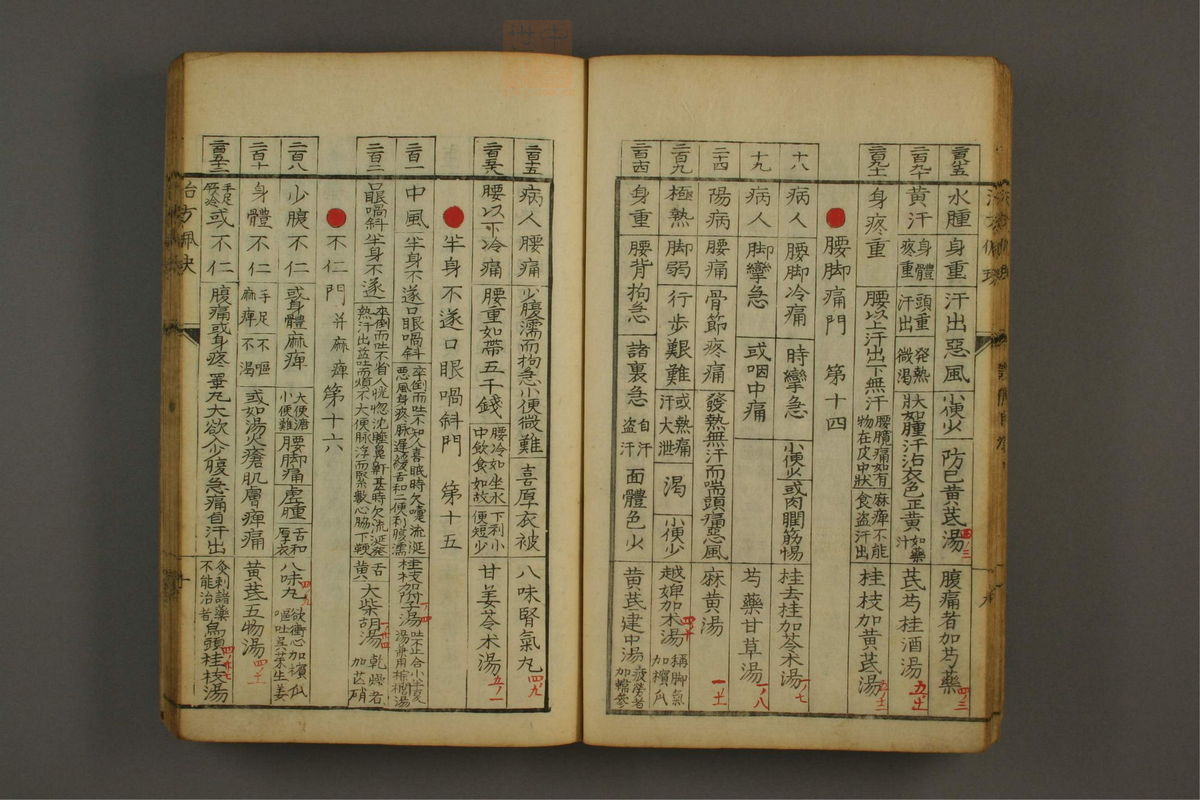 水腫 身重 汗出惡風 小便少 防已黃芪湯 腹痛者加芍藥
黃汗 身體疼重 頭重汗出 発熱微渴 狀如腫汗沾衣色正黃如藥汁 芪芍桂酒湯
身疼重 腰以上汗出下無汗 腰髖痛如有物在皮中狀 麻痺不能食盗汗出 桂枝加黃芪湯
腰脚痛門 第十四
十八 病人 腰脚冷痛 時攣急 小便少或肉瞤筋惕 桂去桂加苓朮湯
十九 病人 脚攣急 或咽中痛 芍藥甘草湯
二十四 陽病 腰痛 骨節疼痛 發熱無汗而喘頭痛惡風 麻黃湯
二百九 極熱 脚弱 行歩艱難 或熱痛汗大泄 渴 小便少 越婢加朮湯 稱脚氣加檳瓜
二百四 身重 腰背拘急 諸裏急 自汗盗汗 面體色少 黃芪建中湯
二百十五 病人 腰痛 少腹濡而拘急小便微難 喜厚衣被 八味腎氣丸
腰以下冷痛 腰重如帶五千錢 腰冷如坐水中飲食如故 下利小便短少 甘姜苓朮湯
半身不遂口眼喎斜門 第十五
二百一 中風 半身不遂口眼喎斜 卒倒而吐不知人喜眠時欠嚏流涎惡風身疼脉遲緩舌和二便利腹濡 桂枝加附子湯
二百二 口眼喎斜 半身不遂 卒倒而吐不省人恍惚沈睡鼻鼾甚時欠流涎發熱汗出並吐而煩不大便脉浮而緊數心脇下鞕 舌黃 大柴胡湯 乾燥者加芒硝
不仁門 并麻痺 第十六
二百八 少腹不仁 或身體麻痺 大便溏小便難 腰脚痛 虛腫 舌和厚衣 八味丸 欲衝心加檳瓜嘔吐呉茱生姜
二百十 身體不仁 手足麻痺 不嘔不渴 或如湯火瘡肌膚痺痛 黃芪五物湯
手足厥冷或不仁 腹痛或身疼 睪丸大欲少腹急痛自汗出 灸刺諸藥不能治者 烏頭桂枝湯